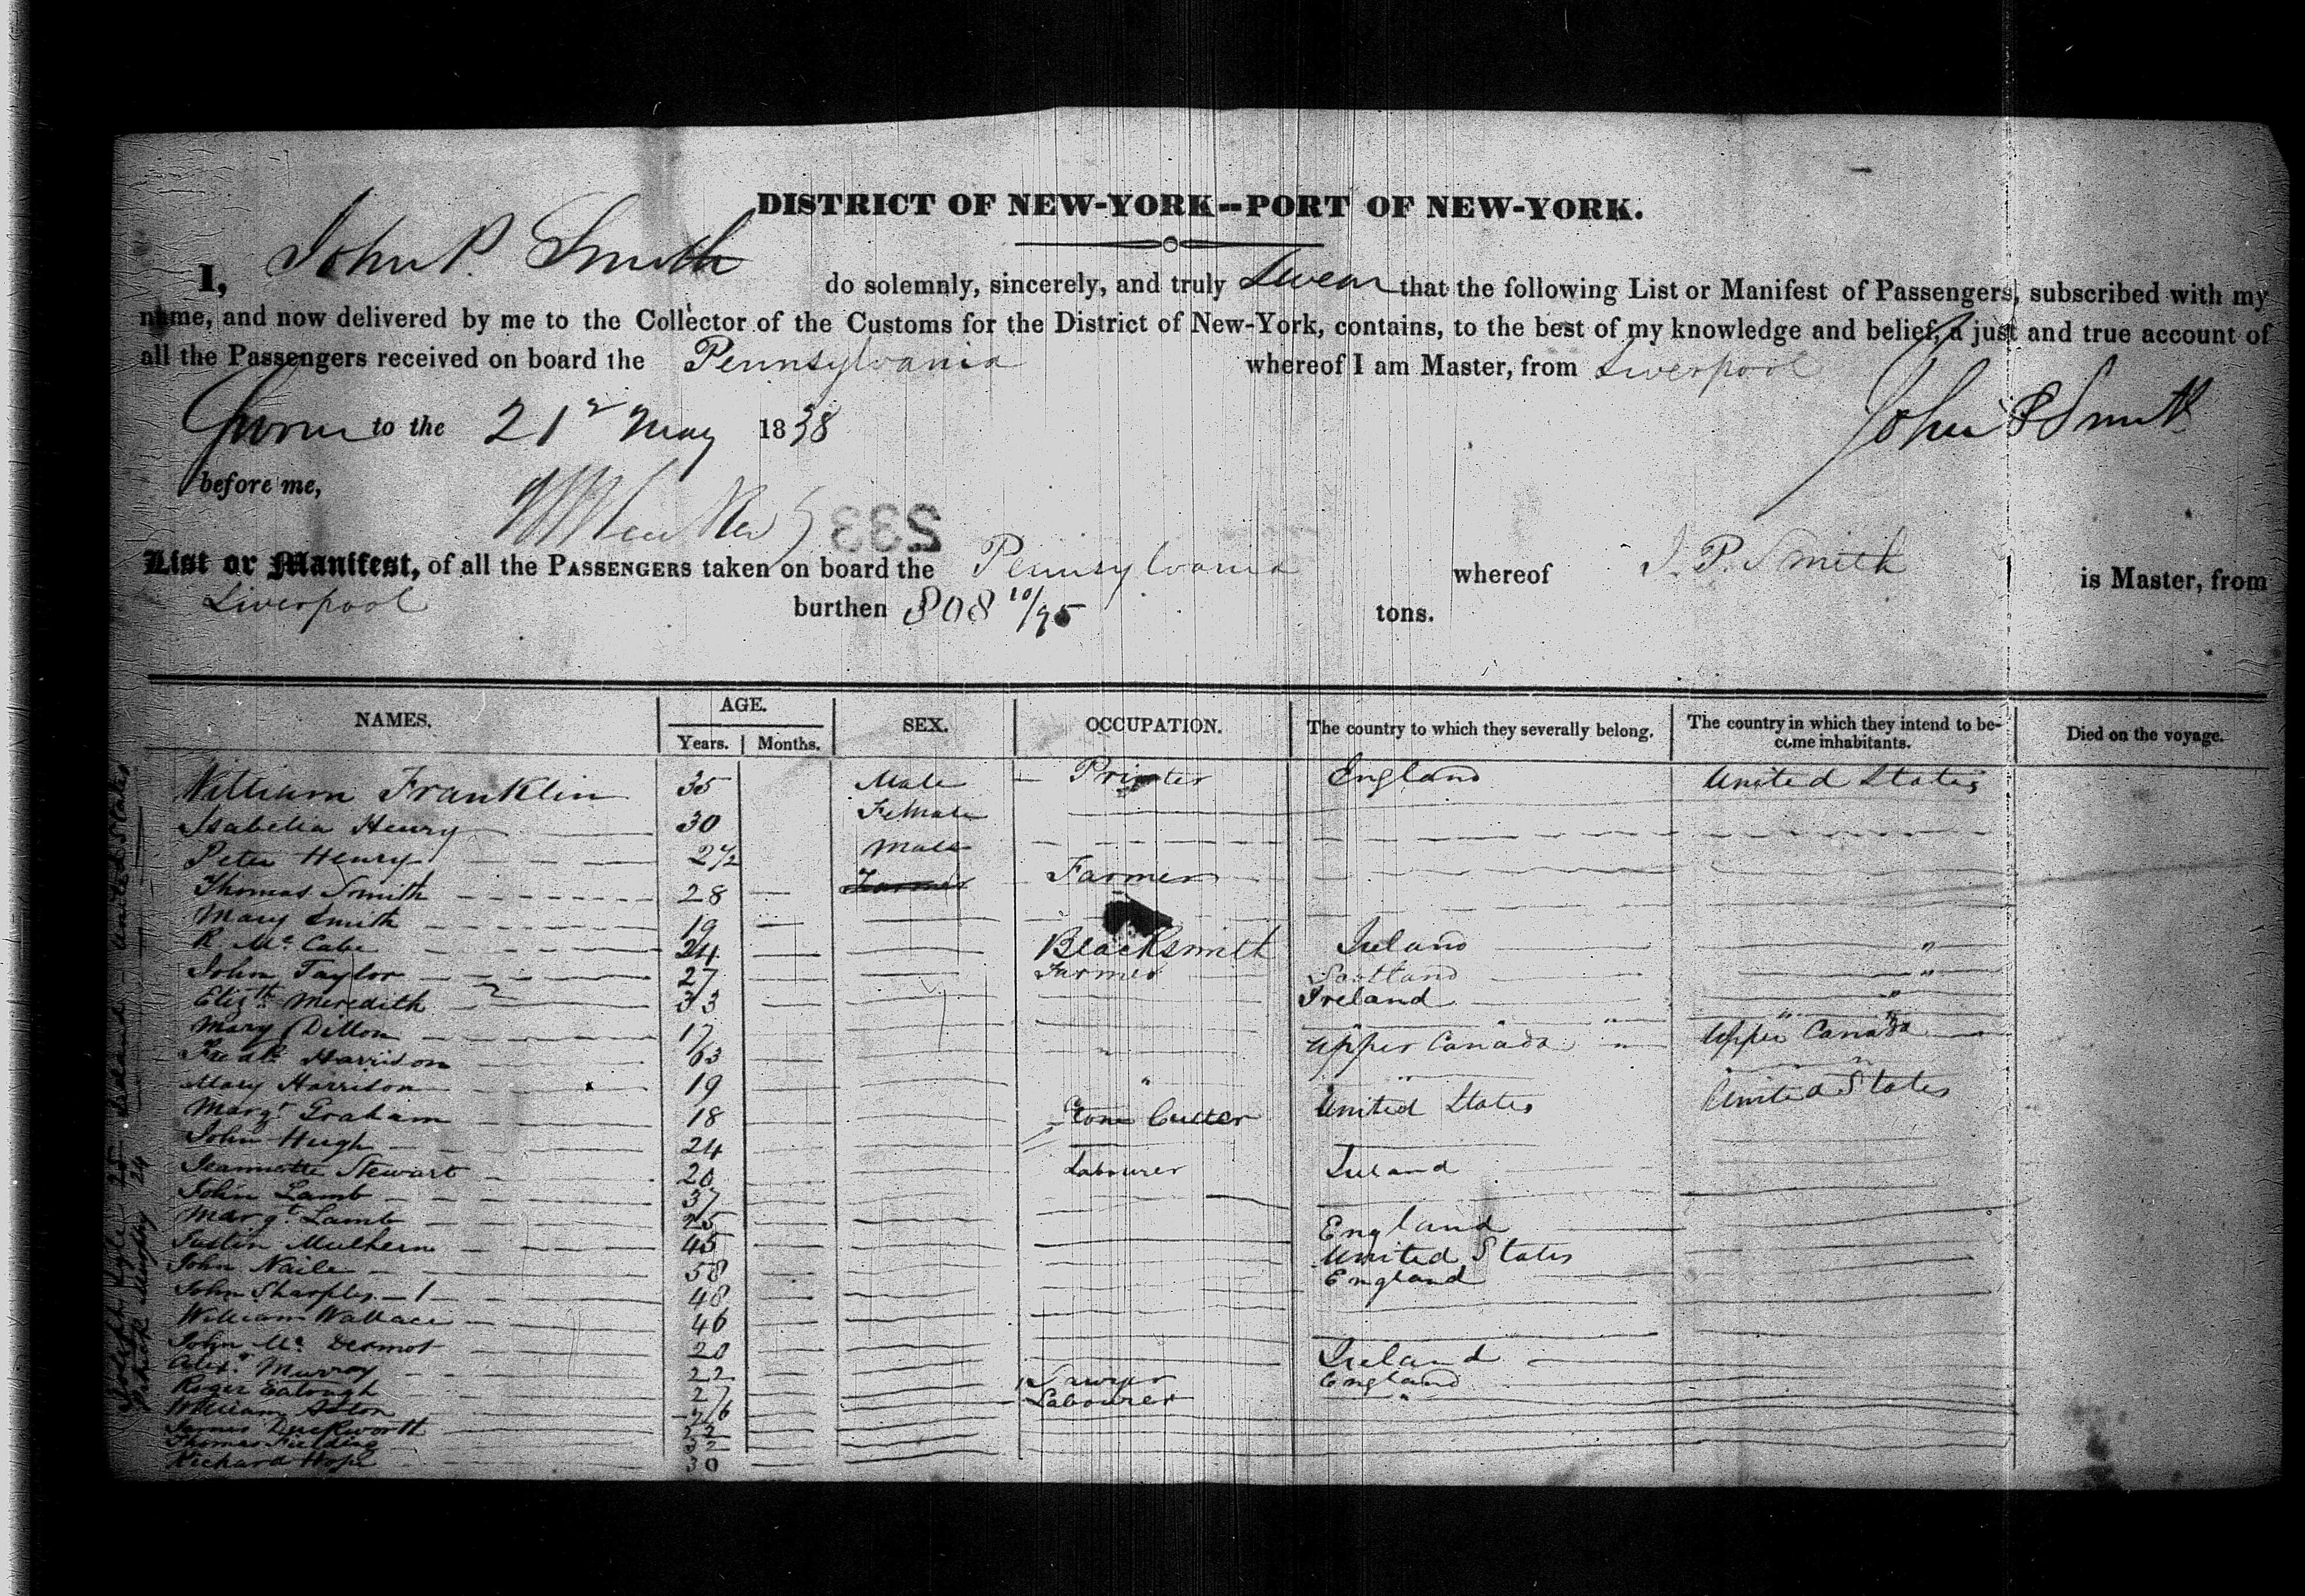 DISTRICT OF NEW-YORK--PORT OF NEW-YORK.
I, John P. Smith do solemnly, sincerely, and truly Swear that the following List or Manifest of Passengers, subscribed with my
name, and now delivered by me to the Collector of the Customs for the District of New-York, contains, to the best of my knowledge and belief, a just and true account of
all the Passengers received on board the Pennsylvania whereof I am Master, from Liverpool
Sworn to the 21 May 1838 John P Smith
before me,
233
List or Manifest, of all the PASSENGERS taken on board the Pennsylvania whereof J. P. Smith is Master, from
Liverpool burthen 808 10/95 tons.
NAMES. AGE. SEX. OCCUPATION. The country to which they severally belong. The country in which they intend to be-come inhabitants. Died on the voyage.
Years. Months.
William Franklin 35 Male Printer England United States
Isabella Henry 30 Female
Peter Henry 2 1/2 Male
Thomas Smith 28 Farmer
Mary Smith 19
R. Mc Cabe 24 Blacksmith Ireland "
John Taylor 27 Farmer Scotland "
Elizth Meredith 33 Ireland "
Mary Dillon 17 " "
Fredk Harrison 63 " Upper Canada " Upper Canada
Mary Harrison 19 " " "
Margt Graham 18 United States United States
John Hugh 24 Stone Cutter
Jeannette Stewart 20
John Lamb 37 Labourer Ireland
Margt Lamb 25
Justin Mulhern 45
John Naile 58 England
John Sharples 48 United States
William Wallace 46 England
John Mc Dermot 20
Alexr Murray 22
Roger Eatough 27 Ireland
William Aston 26 Sawyer England
James Duckworth 22 Labourer "
Thomas Fielding 32
Richard Hope 30
Joseph 25 Ireland United States
Patrick Murphy 24